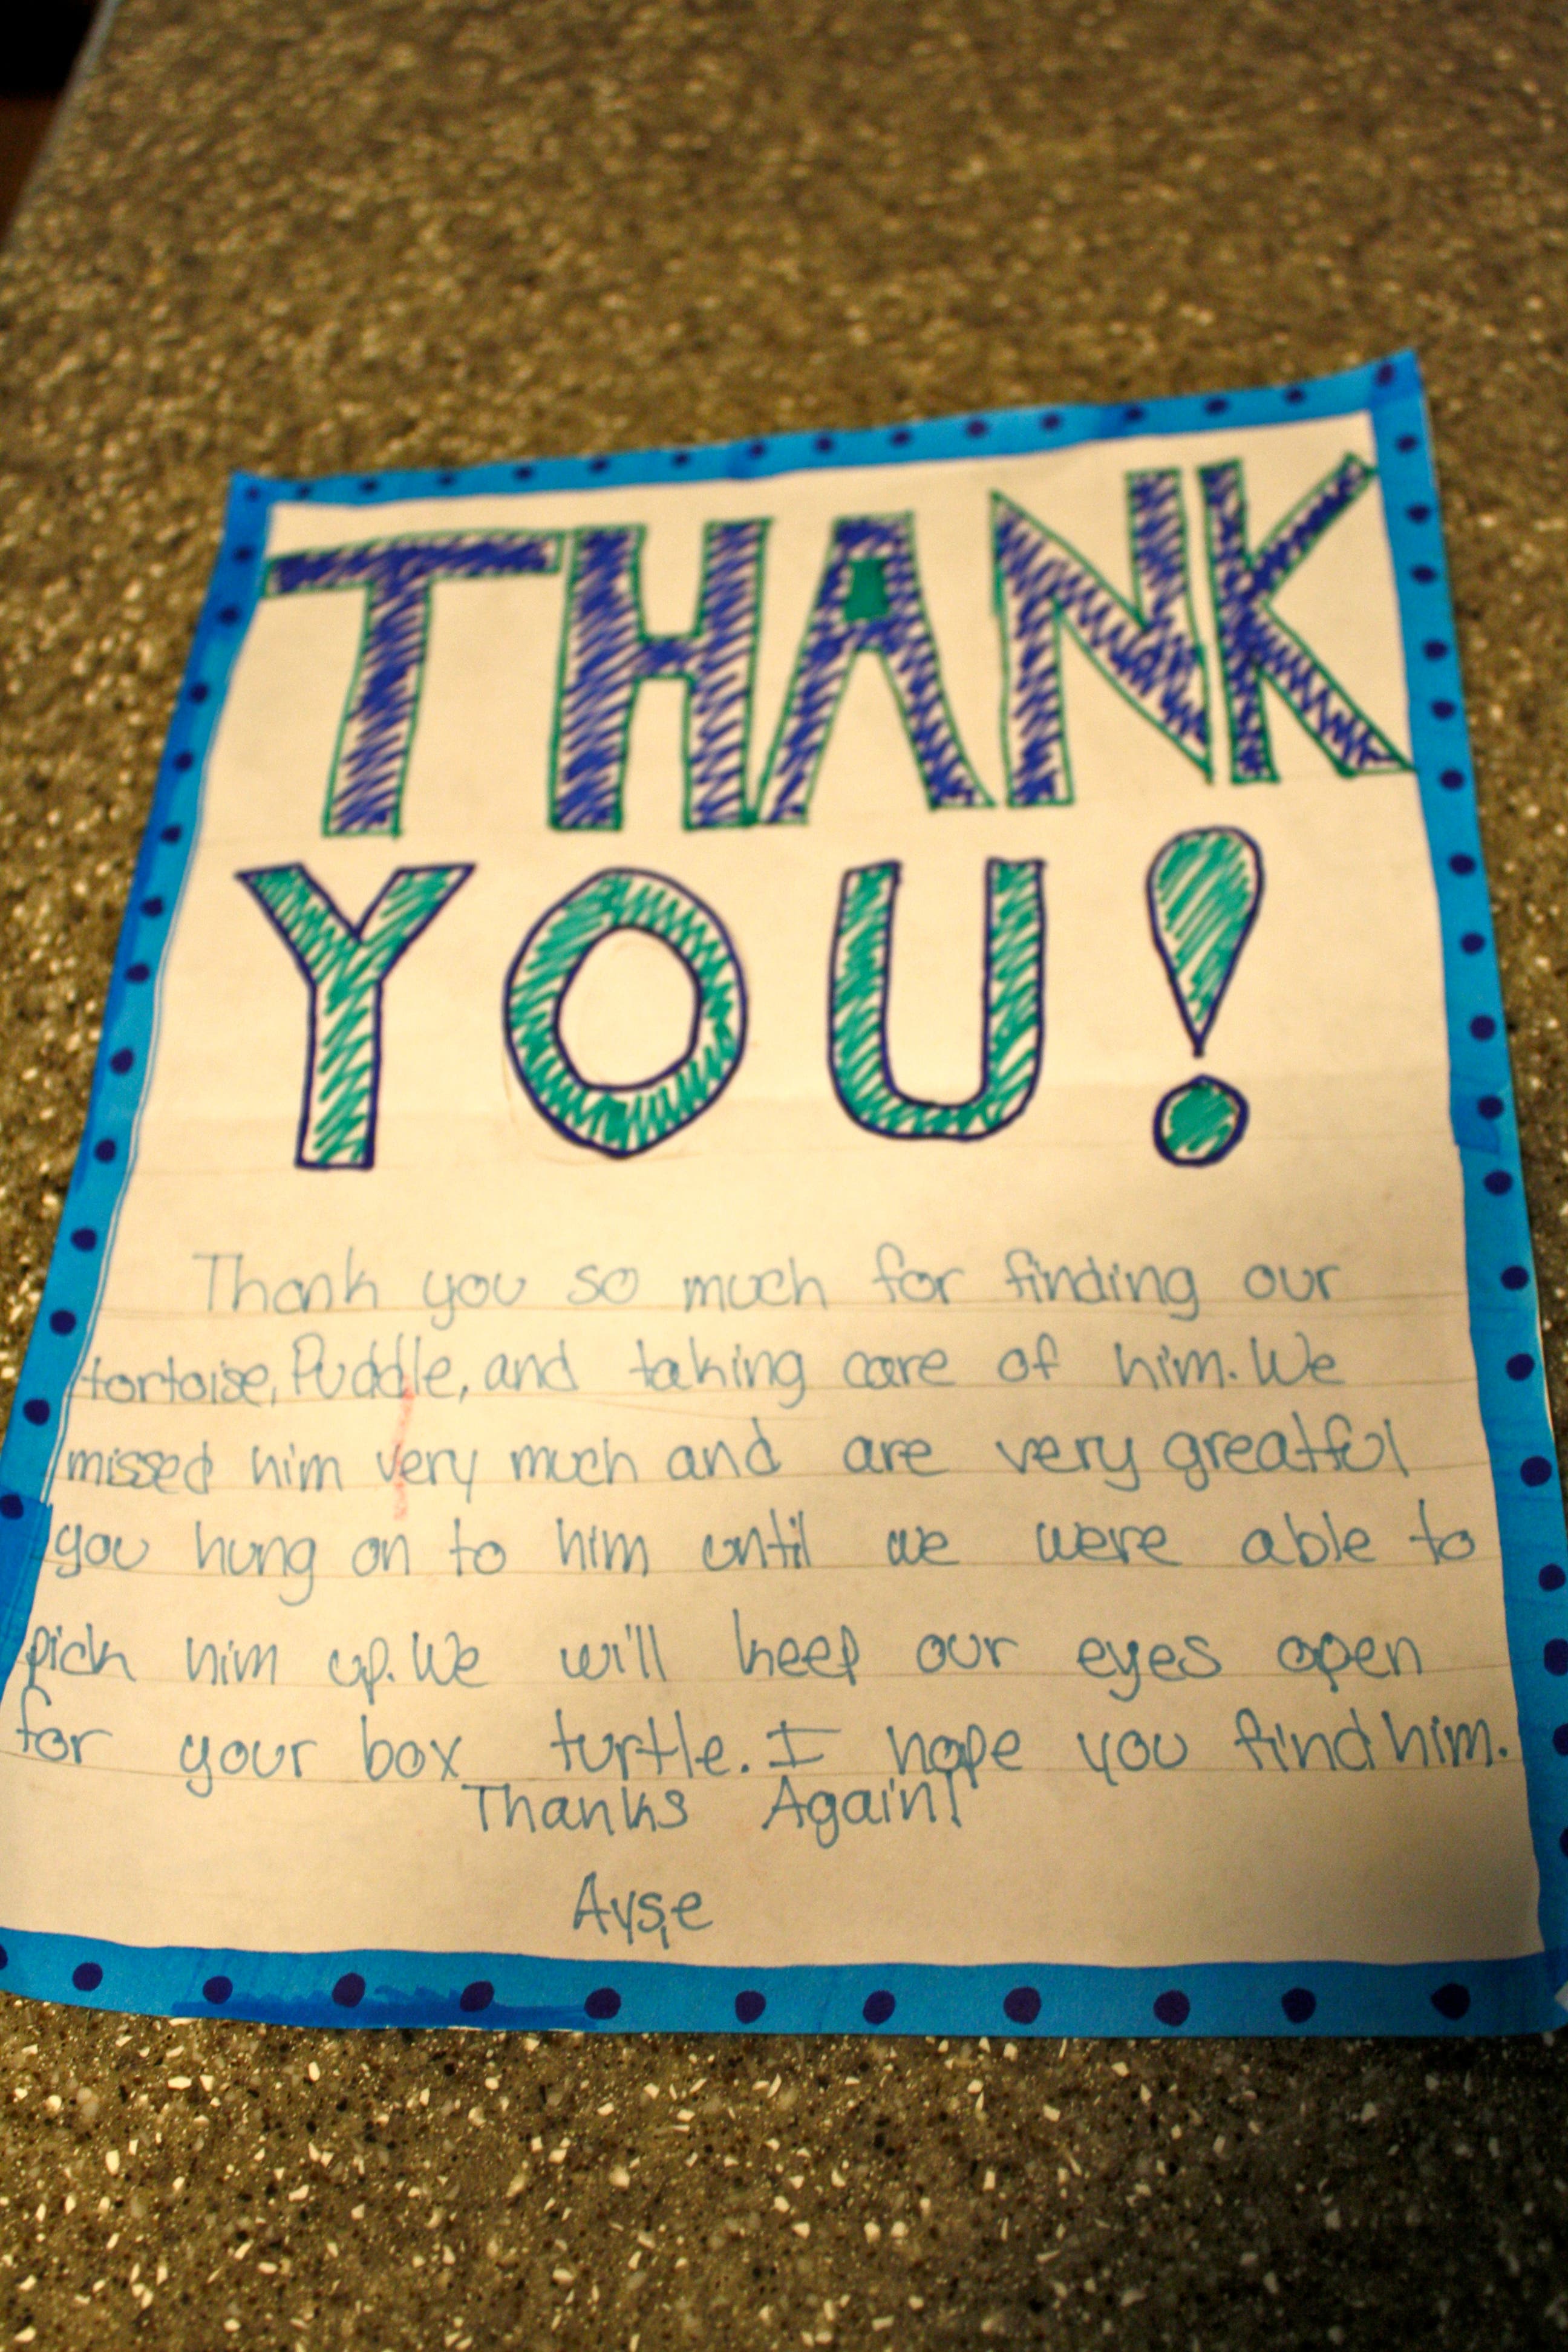 THANK
YOU!
Thank you so much for finding our
tortoise, Puddle, and taking care of him. We
missed him very much and are very greatful
you hung on to him until we were able to
pick him up. We will keep our eyes open
for your box turtle. I hope you find him.
Thanks Again!
Ayşe